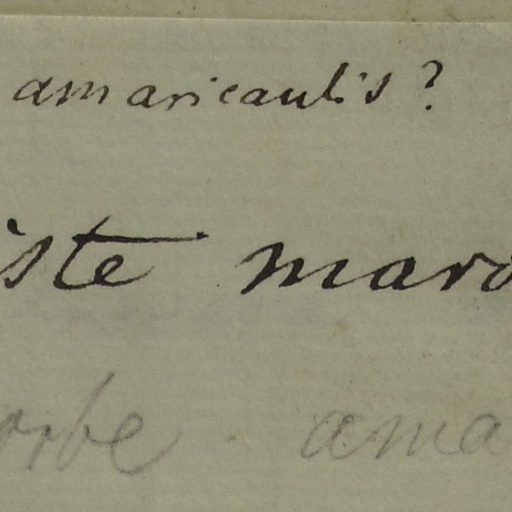 amaricaulis?
iste maro
orbe. ama